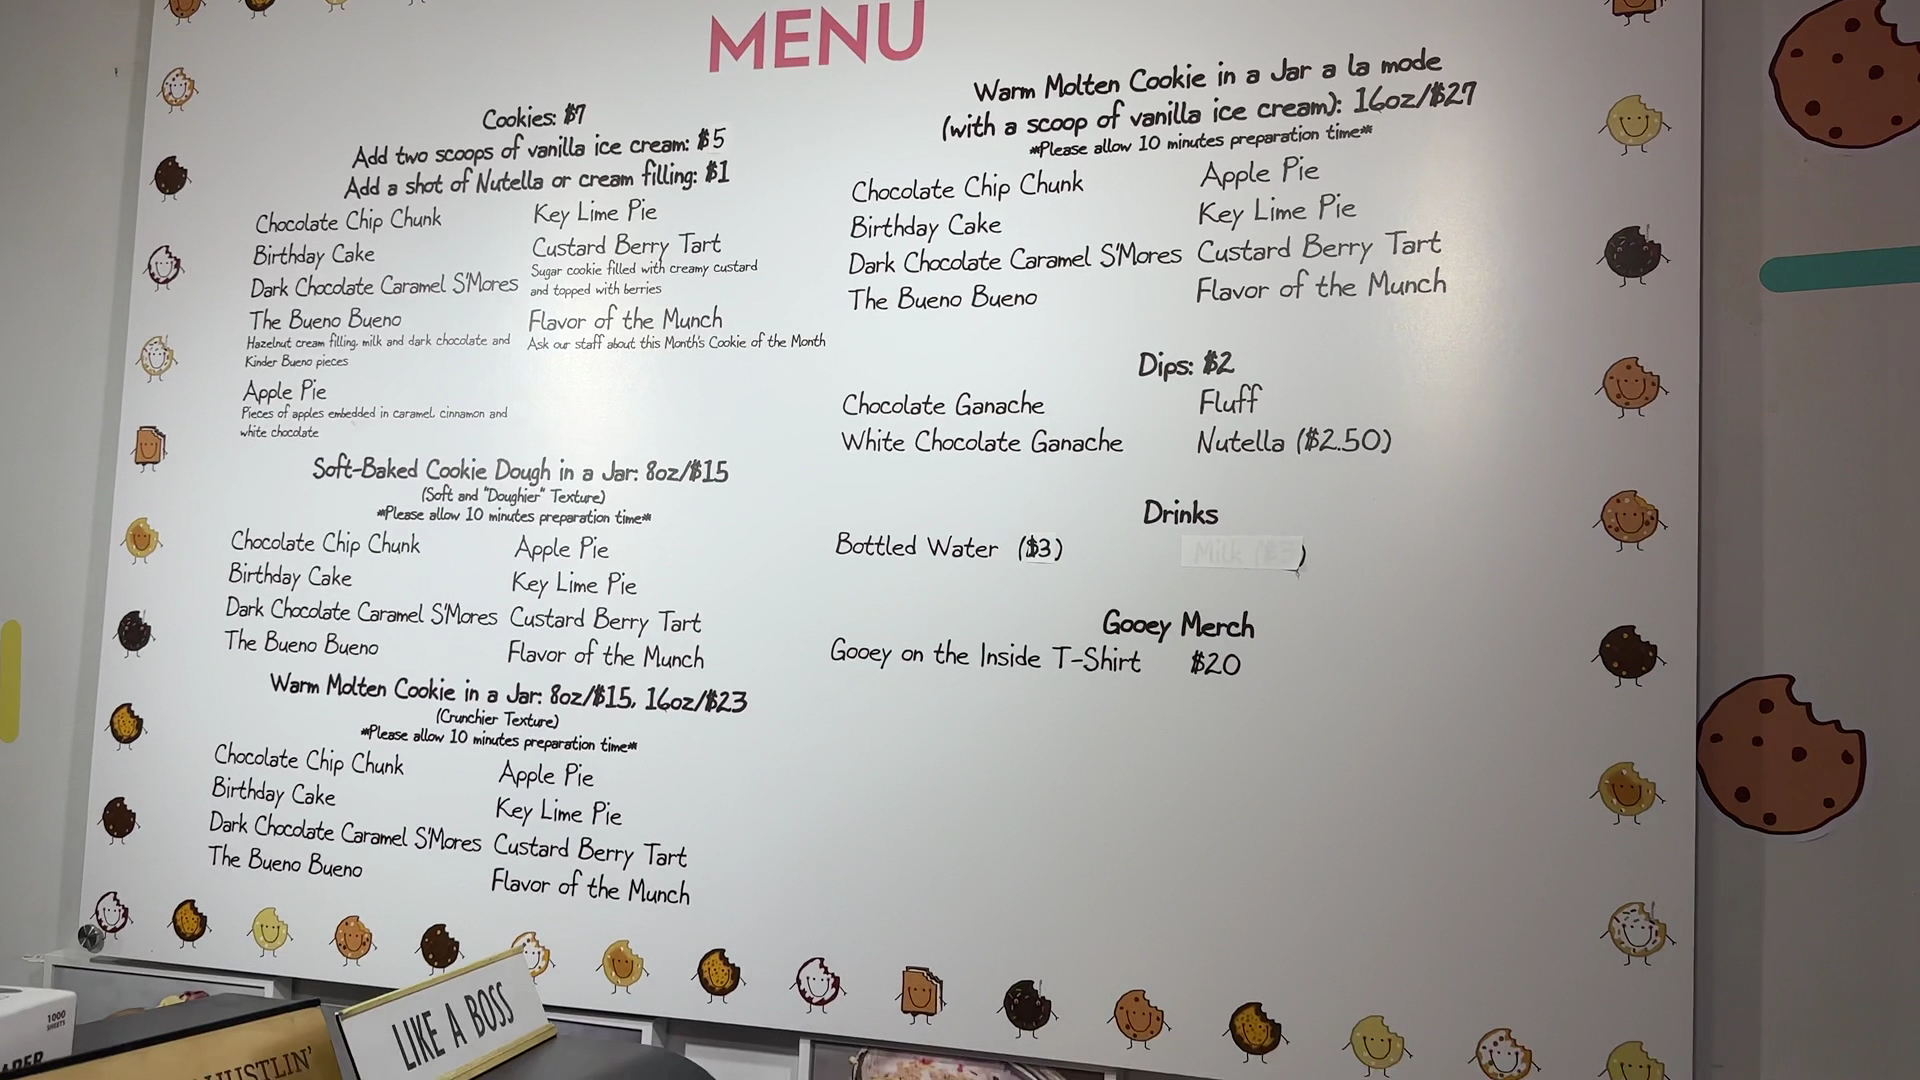 MENU
Cookies: $7
Add two scoops of vanilla ice cream: $5
Add a shot of Nutella or cream filling: $1
Chocolate Chip Chunk
Birthday Cake
Dark Chocolate Caramel S'Mores
The Bueno Bueno
Hazelnut cream filling, milk and dark chocolate and
Kinder Bueno pieces
Apple Pie
Pieces of apples embedded in caramel, cinnamon and
white chocolate
Key Lime Pie
Custard Berry Tart
Sugar cookie filled with creamy custard
and topped with berries
Flavor of the Munch
Ask our staff about this Month's Cookie of the Month
Soft-Baked Cookie Dough in a Jar: 8oz/$15
(Soft and "Doughier" Texture)
*Please allow 10 minutes preparation time*
Chocolate Chip Chunk
Birthday Cake
Dark Chocolate Caramel S'Mores
The Bueno Bueno
Apple Pie
Key Lime Pie
Custard Berry Tart
Flavor of the Munch
Warm Molten Cookie in a Jar: 8oz/$15, 16oz/$23
(Crunchier Texture)
*Please allow 10 minutes preparation time*
Chocolate Chip Chunk
Birthday Cake
Dark Chocolate Caramel S'Mores
The Bueno Bueno
Apple Pie
Key Lime Pie
Custard Berry Tart
Flavor of the Munch
Warm Molten Cookie in a Jar a la mode
(with a scoop of vanilla ice cream): 16oz/$27
*Please allow 10 minutes preparation time*
Chocolate Chip Chunk
Birthday Cake
Dark Chocolate Caramel S'Mores
The Bueno Bueno
Apple Pie
Key Lime Pie
Custard Berry Tart
Flavor of the Munch
Dips: $2
Chocolate Ganache
White Chocolate Ganache
Fluff
Nutella ($2.50)
Drinks
Bottled Water ($3)
Milk ($3)
Gooey Merch
Gooey on the Inside T-Shirt $20
LIKE A BOSS
HUSTLIN'
1000
SHEETS